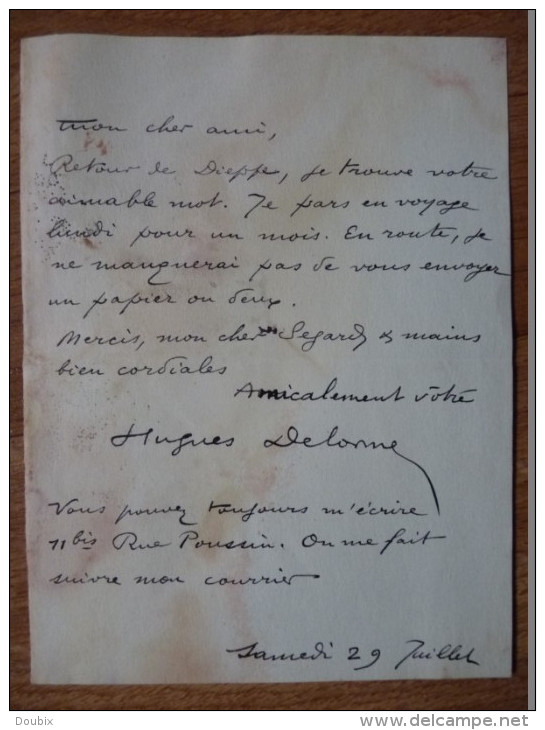 Mon cher ami,
Retour de Dieppe, je trouve votre
aimable mot. Je pars en voyage
lundi pour un mois. En route, je
ne manquerai pas de vous envoyer
un papier ou deux.
Mercis, mon cher Segard & mains
bien cordiales
Amicalement vôtre
Hugues Delorme
Vous pouvez toujours m'écrire
11bis Rue Poussin. On me fait
suivre mon courrier
Samedi 29 Juillet
Doubix
www.delcampe.net